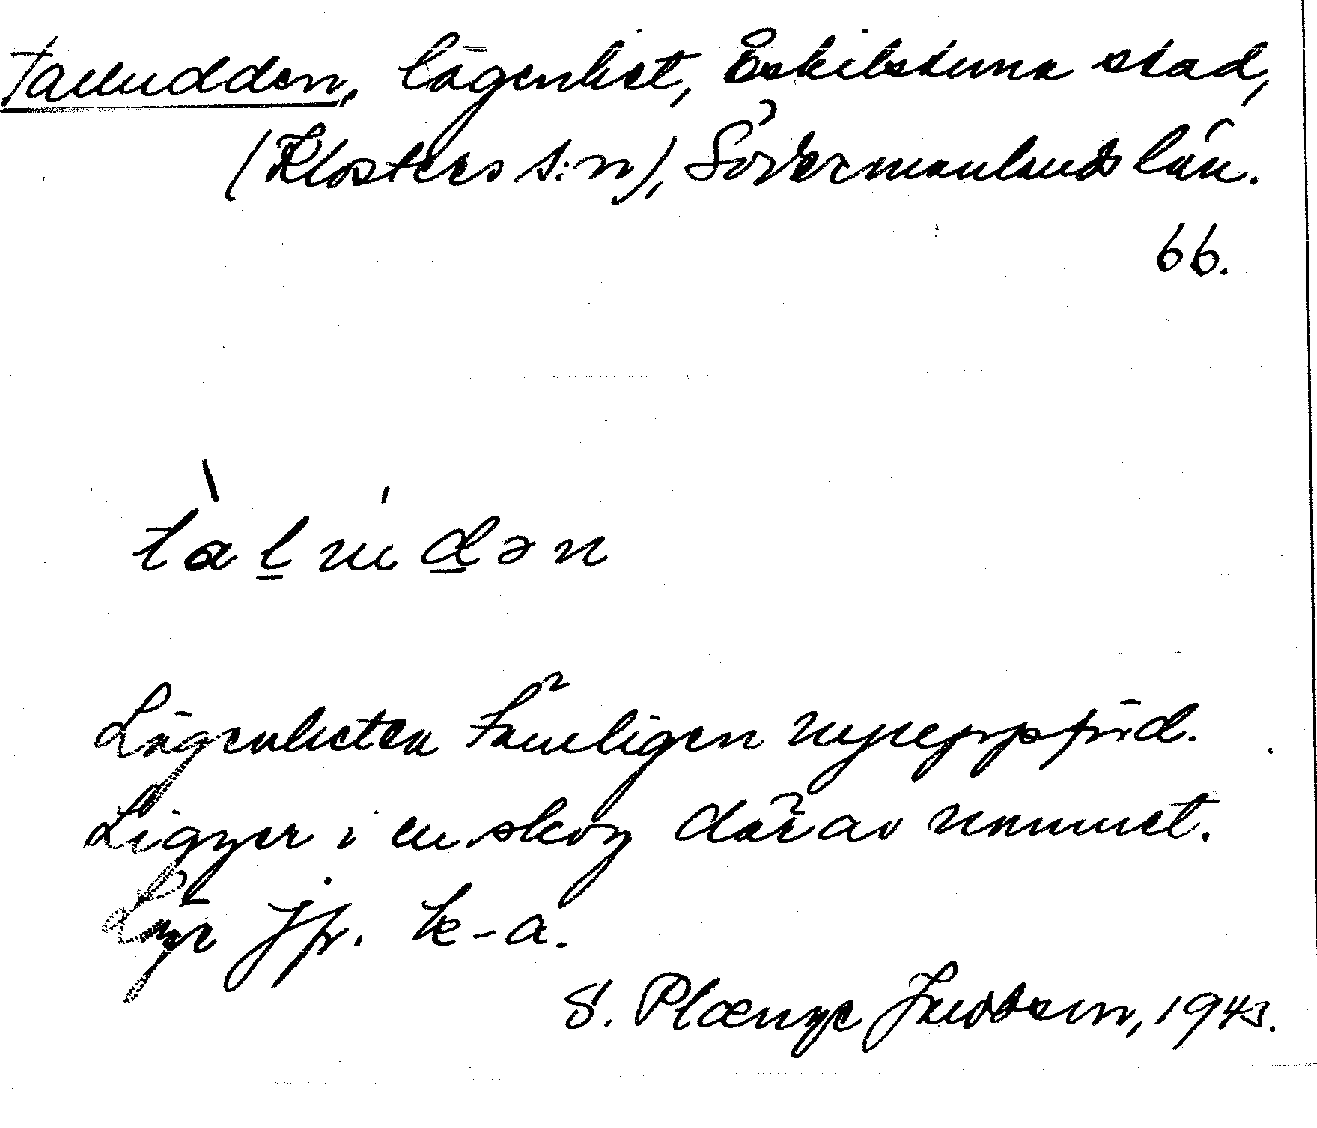 Talludden, lägenhet, Eskilstuna stad,
(Klosters s:n), Södermanlands län.
66.
tàl̠údən
Lägenheten tämligen nyuppförd.
Ligger i en skog därav namnet.
Äger jfr. k-a.
S. Plænge Jacobson, 1943.